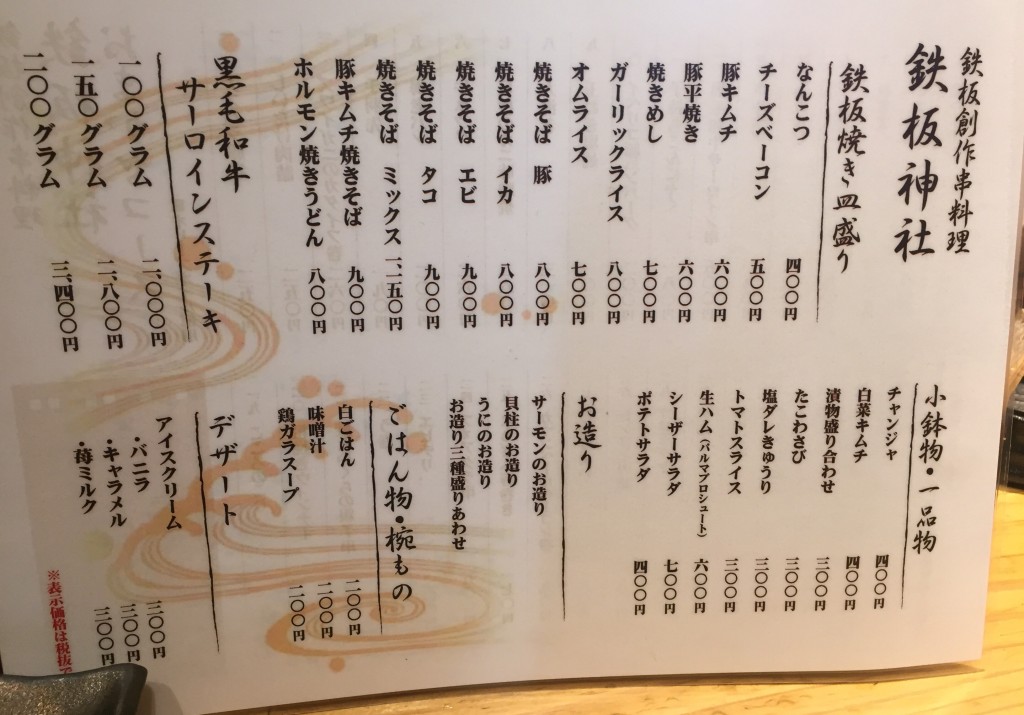 鉄板創作串料理
鉄板神社
鉄板焼き皿盛り
なんこつ 四〇〇円
チーズベーコン 五〇〇円
豚キムチ 六〇〇円
豚平焼き 六〇〇円
焼きめし 七〇〇円
ガーリックライス 八〇〇円
オムライス 七〇〇円
焼きそば 豚 八〇〇円
焼きそば イカ 八〇〇円
焼きそば エビ 九〇〇円
焼きそば タコ 九〇〇円
焼きそば ミックス 一、一五〇円
豚キムチ焼きそば 九〇〇円
ホルモン焼きうどん 八〇〇円
黒毛和牛
サーロインステーキ
一〇〇グラム 二、〇〇〇円
一五〇グラム 二、八〇〇円
二〇〇グラム 三、四〇〇円
小鉢物・一品物
チャンジャ 四〇〇円
白菜キムチ 四〇〇円
漬物盛り合わせ 三〇〇円
たこわさび 三〇〇円
塩ダレきゅうり 三〇〇円
トマトスライス 三〇〇円
生ハム（パルマプロシュート） 六〇〇円
シーザーサラダ 七〇〇円
ポテトサラダ 四〇〇円
お造り
サーモンのお造り
貝柱のお造り
うにのお造り
お造り三種盛りあわせ
ごはん物・椀もの
白ごはん 二〇〇円
味噌汁 二〇〇円
鶏ガラスープ 二〇〇円
デザート
アイスクリーム 三〇〇円
・バニラ 三〇〇円
・キャラメル 三〇〇円
・苺ミルク
※表示価格は税抜で